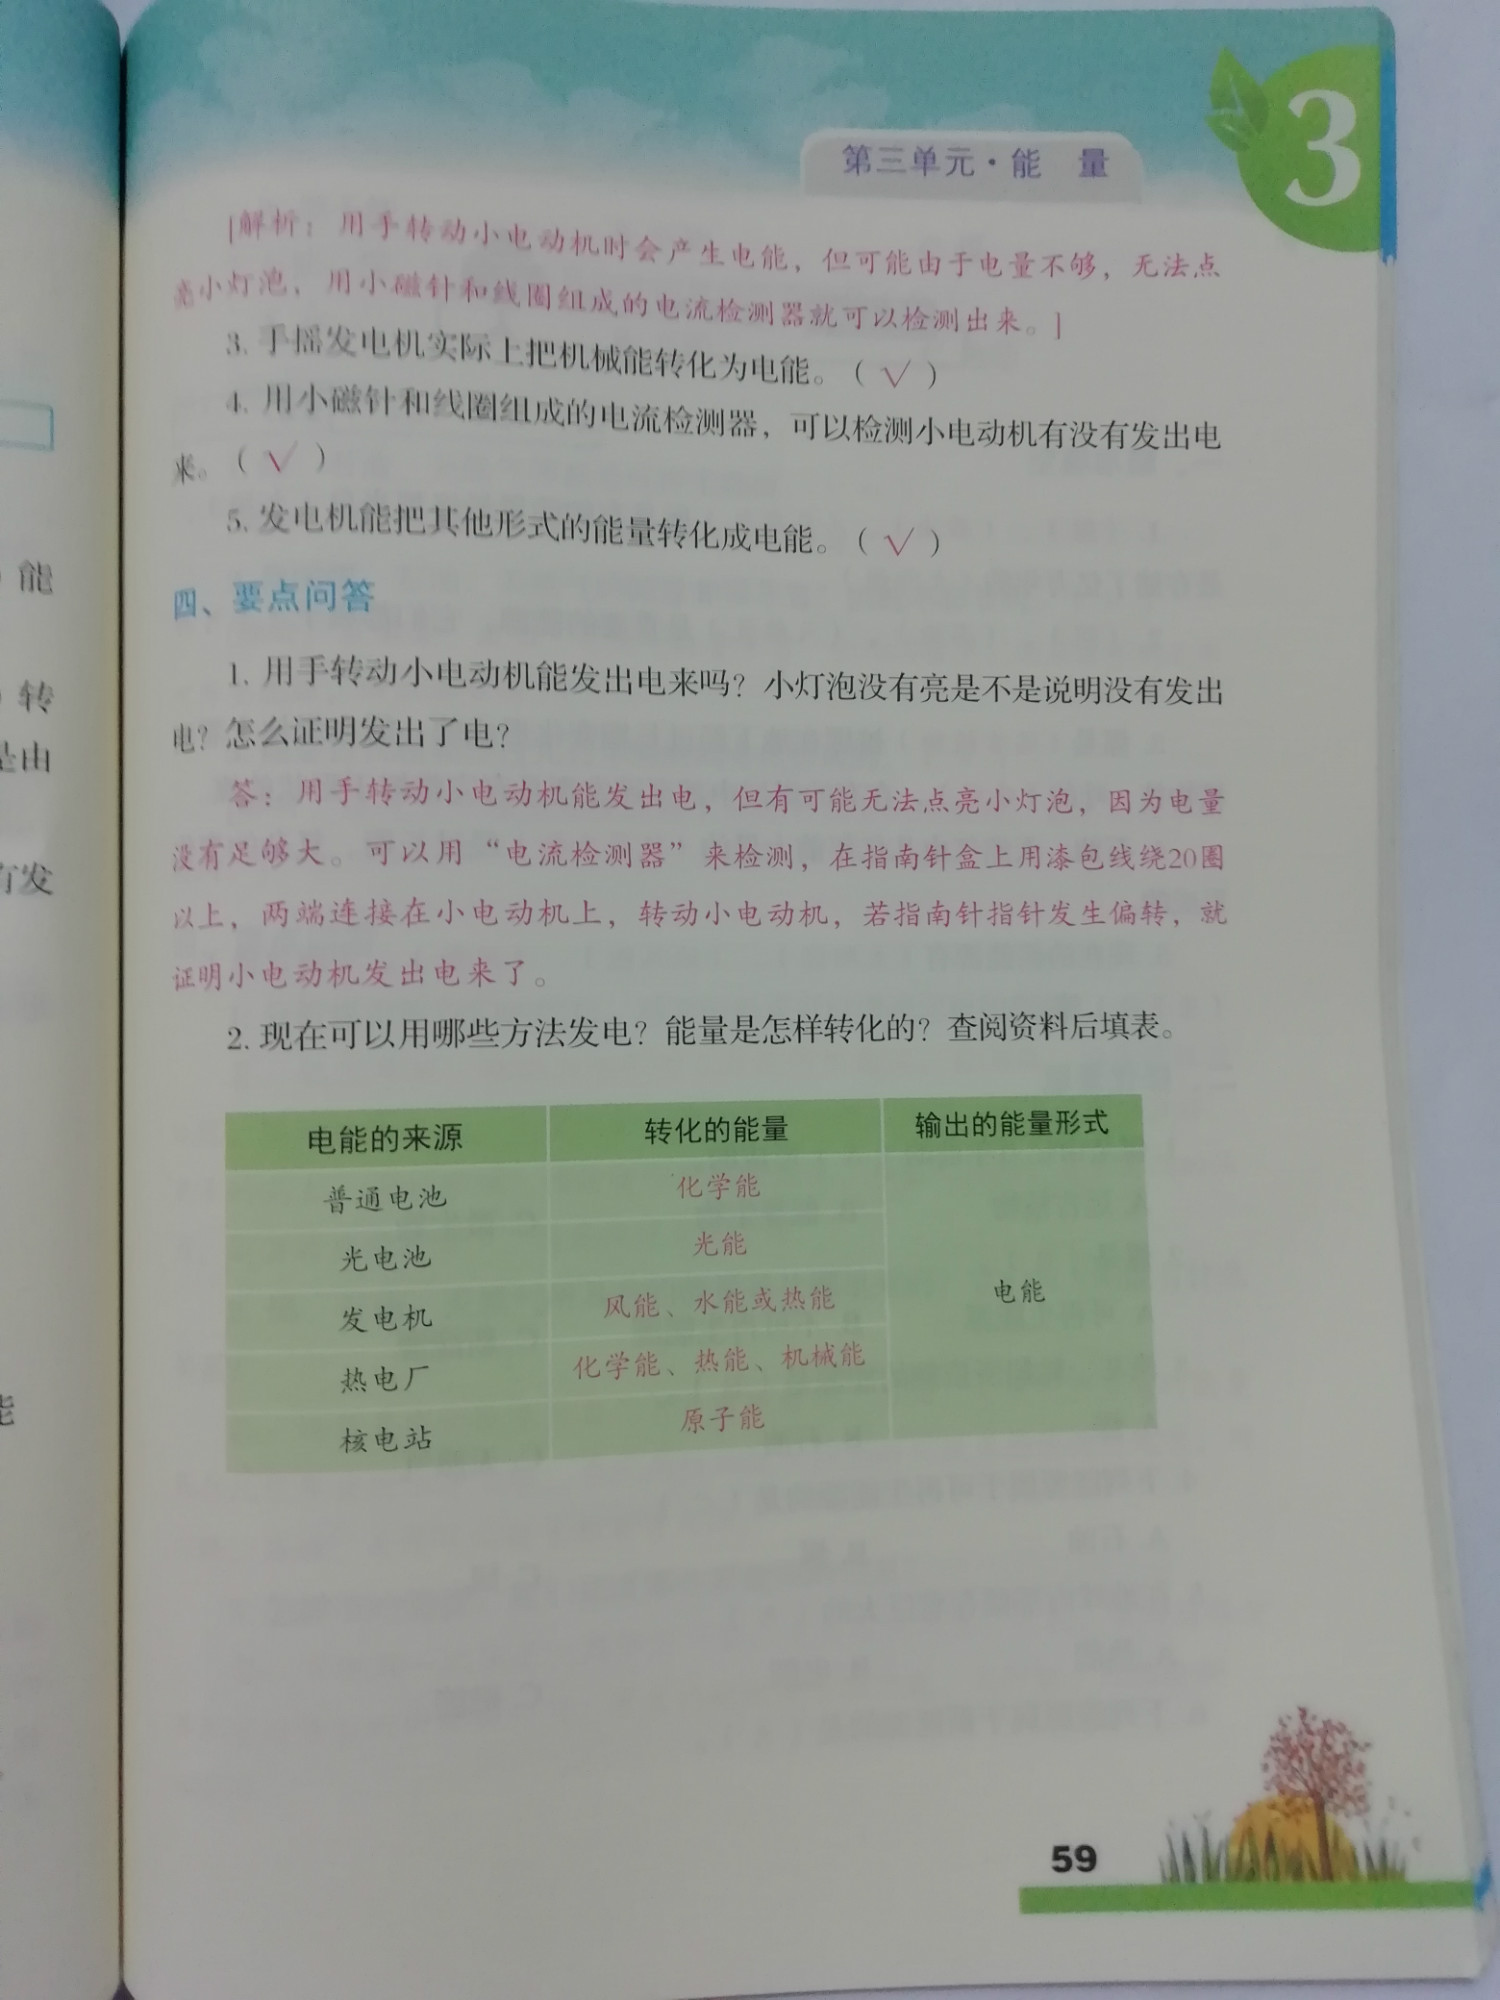 第三单元·能 量
3
[解析：用手转动小电动机时会产生电能，但可能由于电量不够，无法点
亮小灯泡，用小磁针和线圈组成的电流检测器就可以检测出来。]
3. 手摇发电机实际上把机械能转化为电能。（√）
4. 用小磁针和线圈组成的电流检测器，可以检测小电动机有没有发出电
来。（√）
5. 发电机能把其他形式的能量转化成电能。（√）
四、要点问答
1. 用手转动小电动机能发出电来吗？小灯泡没有亮是不是说明没有发出
电？怎么证明发出了电？
答：用手转动小电动机能发出电，但有可能无法点亮小灯泡，因为电量
没有足够大。可以用“电流检测器”来检测，在指南针盒上用漆包线绕20圈
以上，两端连接在小电动机上，转动小电动机，若指南针指针发生偏转，就
证明小电动机发出电来了。
2. 现在可以用哪些方法发电？能量是怎样转化的？查阅资料后填表。
电能的来源 转化的能量 输出的能量形式
普通电池 化学能
光电池 光能
发电机 风能、水能或热能 电能
热电厂 化学能、热能、机械能
核电站 原子能
59
能
转
是由
有发
能